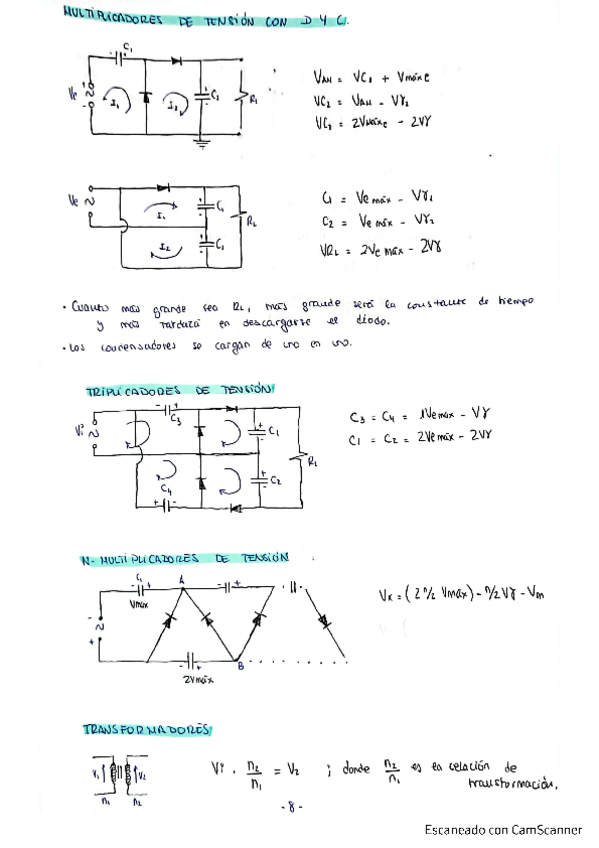 MULTIPLICADORES DE TENSIÓN CON D Y C.
C1
Ve
I1
I2
C2
R1
VAM = VC1 + Vmáxe
VC2 = VAM - Vγ2
VC2 = 2Vmáxe - 2Vγ
Ve
I1
I2
C1
C2
RL
C1 = Ve máx - Vγ1
C2 = Ve máx - Vγ2
VRL = 2Ve máx - 2Vγ
· Cuanto más grande sea RL, más grande será la constante de tiempo
y más tardará en descargarse el diodo.
· Los condensadores se cargan de uno en uno.
TRIPLICADORES DE TENSIÓN
Vi
C3
C1
C2
C4
RL
C3 = C4 = 1Ve máx - Vγ
C1 = C2 = 2Ve máx - 2Vγ
N-MULTIPLICADORES DE TENSIÓN
C1
A
Vmáx
B
2Vmáx
Vk = (2 n/2 Vmáx) - n/2 Vγ - Vm
TRANSFORMADORES
V1
V2
n1
n2
Vi · n2/n1 = V2 ; donde n2/n1 es la relación de
transformación.
- 8 -
Escaneado con CamScanner